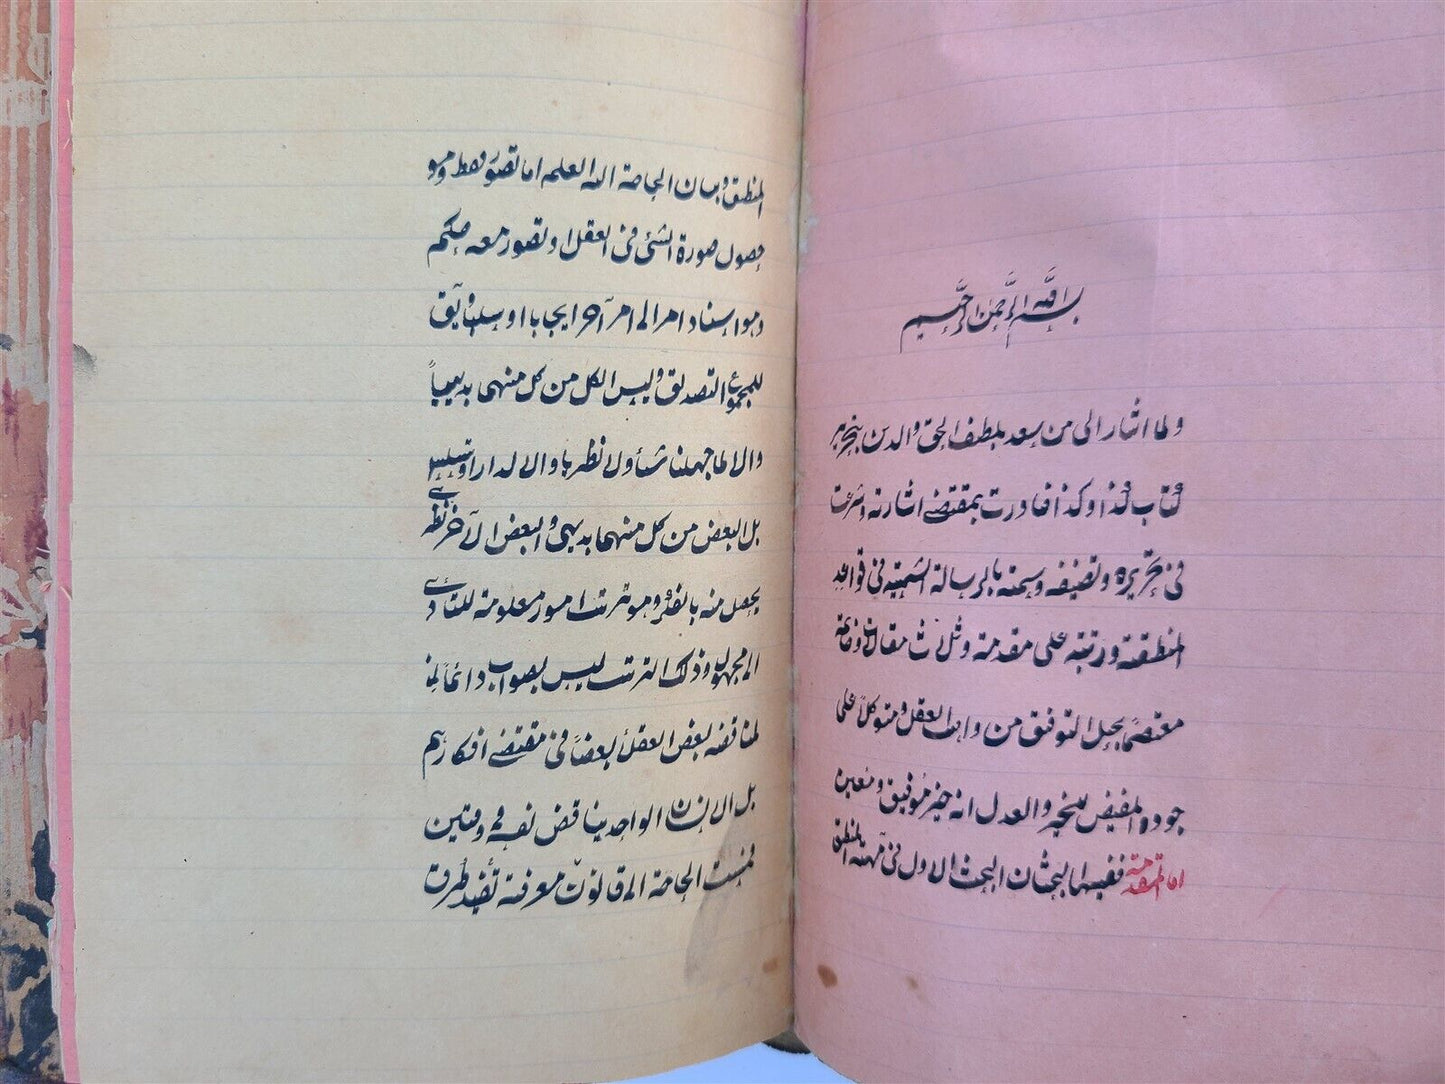 بسم الله الرحمن الرحيم
ولما اشار الى من سعد بلطف الحق والدين بتحرير
كتاب كذا وكذا فبادرت بمقتضى اشارته وشرعت
فى تحريره وتصنيفه وسمته بالرسالة الشمسية فى قواعد
المنطقية ورتبته على مقدمة وثلاث مقالات وخاتمة
معتصما بحبل التوفيق من واهب العقل ومتوكلا على
جوده المفيض للخير والعدل انه خير موفق ومعين
اما المقدمة ففيها البحثان البحث الاول فى مهية المنطق
المنطق وبيان الحاجة اليه العلم اما تصور فقط وهو
حصول صورة الشئ فى العقل او تصور معه حكم
وهو اسناد امر الى امر آخر ايجابا او سلبا ويق
للمجموع التصديق وليس الكل من كل منهما بديهياً
والا لما جهلنا شيأ ولا نظريا والا لدار او تسلسل
بل البعض من كل منهما بديهى والبعض الآخر نظرى
يحصل منه بالفكر وهو ترتيب امور معلومة للتادى
الى مجهول وذلك الترتيب ليس بصواب دائما لما
لمناقضة بعض العقلأ بعضاً فى مقتضى افكارهم
بل الانسان الواحد يناقض نفسه فى وقتين
فمست الحاجة الى قانون معرفة تفيد طرق